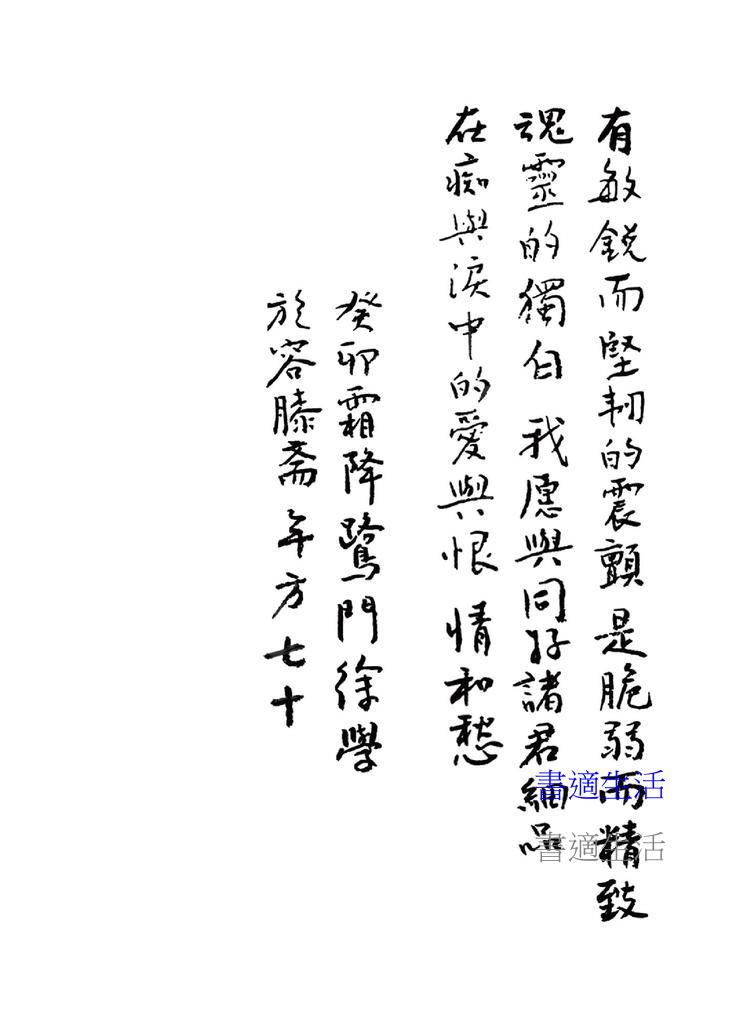 有敏鋭而堅韌的震顫是脆弱而精致
魂靈的獨白我愿與同好諸君細品
在痴與淚中的愛與恨情和愁
癸卯霜降鷺門徐學
於容膝斋年方七十
書適生活
書適生活